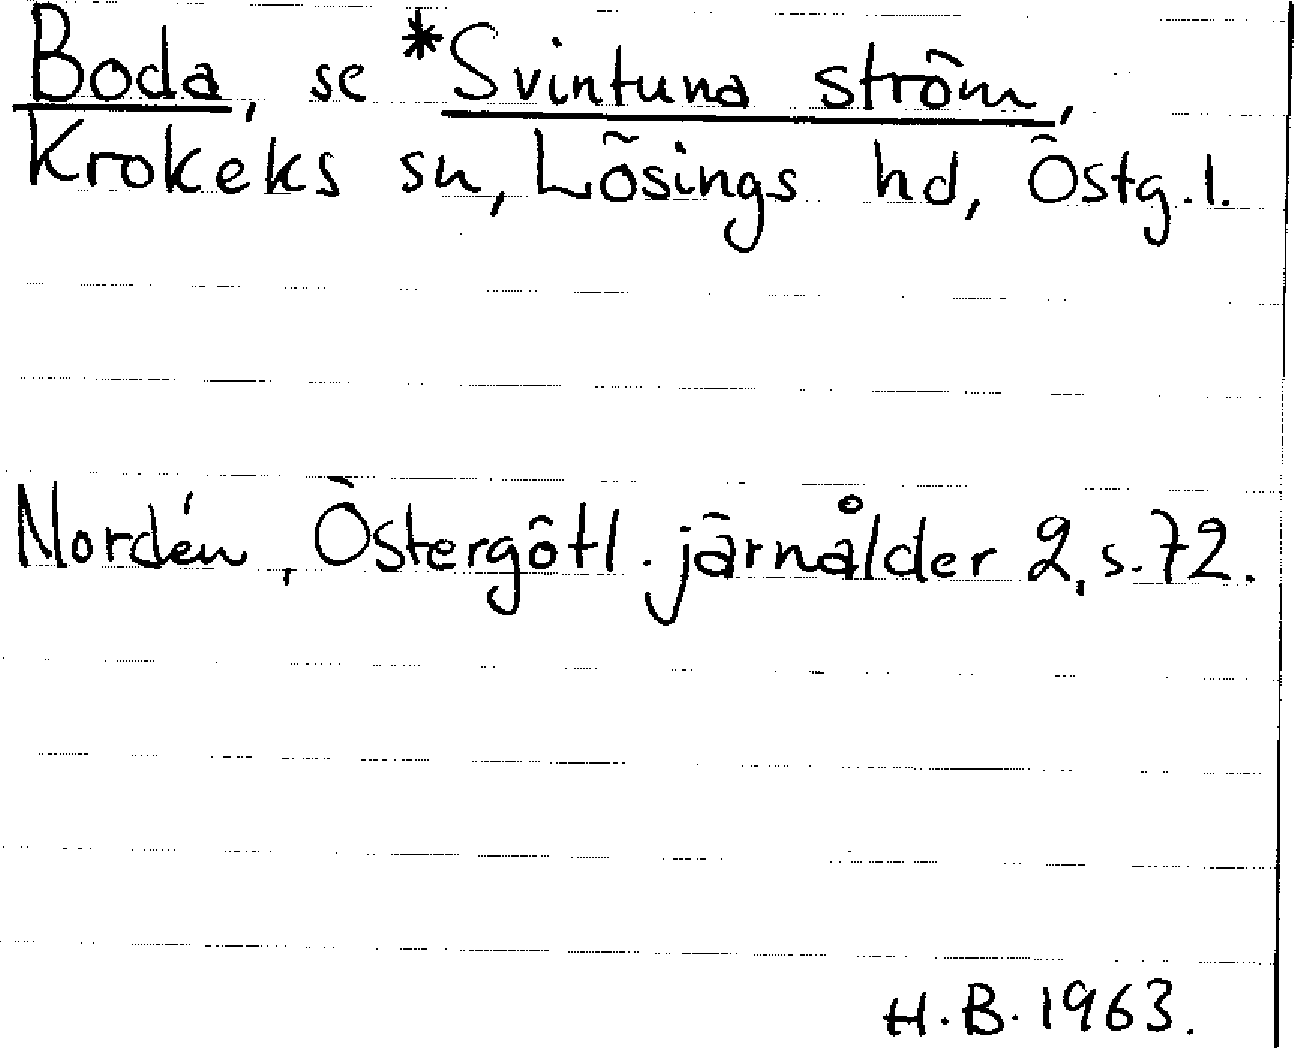 Boda, se *Svintuna ström,
Krokeks sn, Lösings hd, Östg.l.
Nordén, Östergötl. järnålder 2, s. 72.
H.B. 1963.